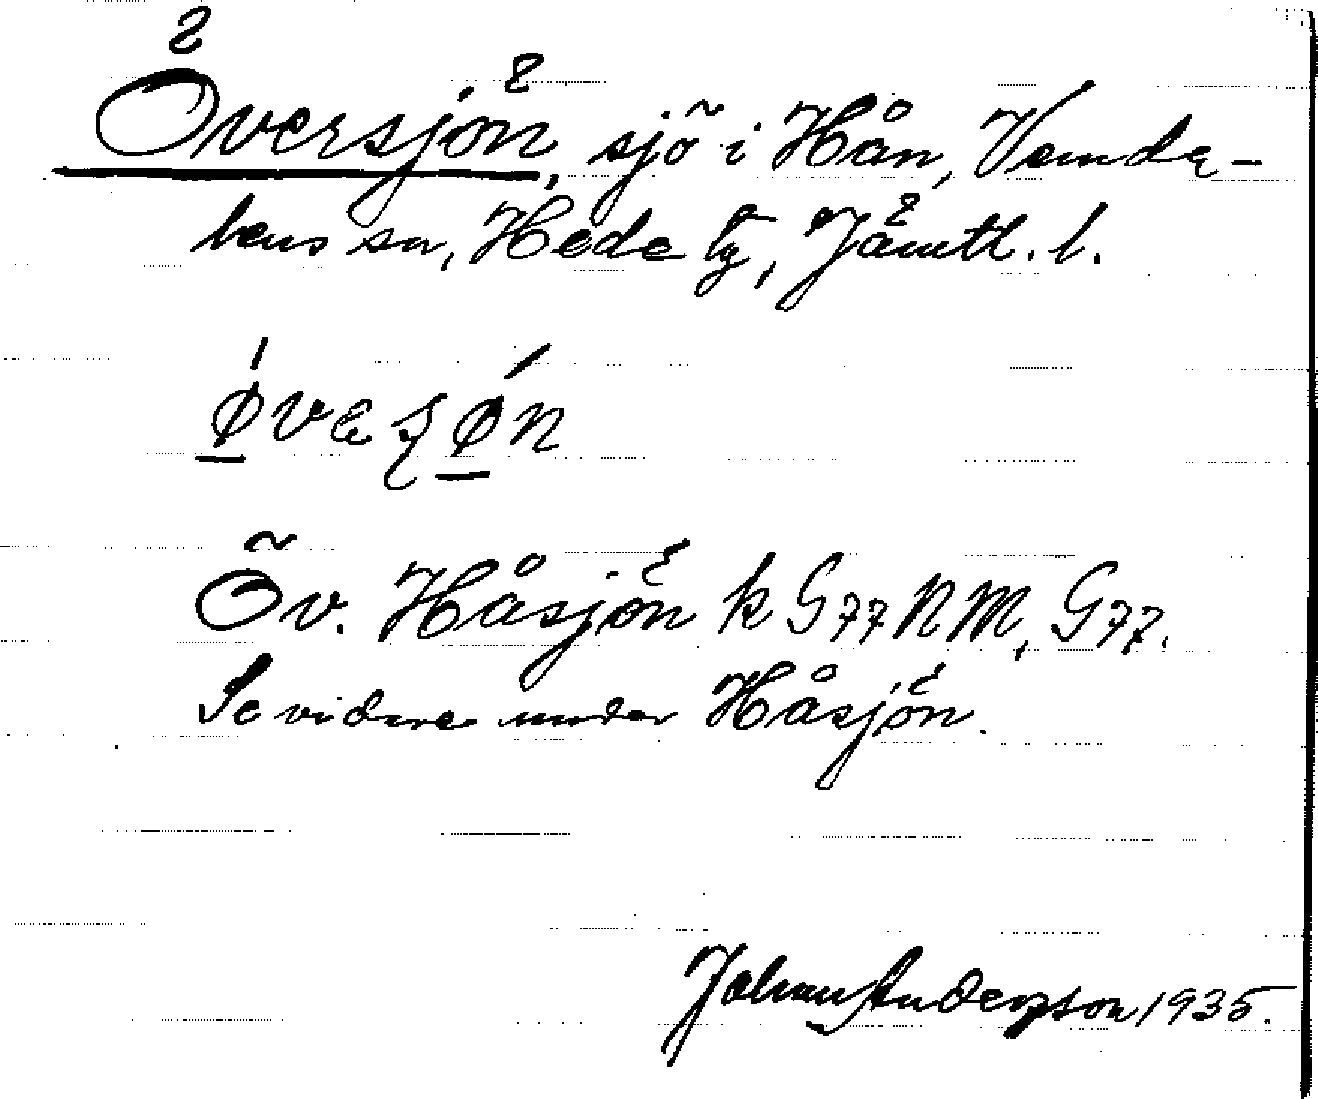 Översjön, sjö i Hån, Vemda-
lens sn, Hede tg, Jämtl. l.
Öv. Håsjön k G77 NM, G77.
Se vidare under Håsjön.
Johan Anderzson 1935.